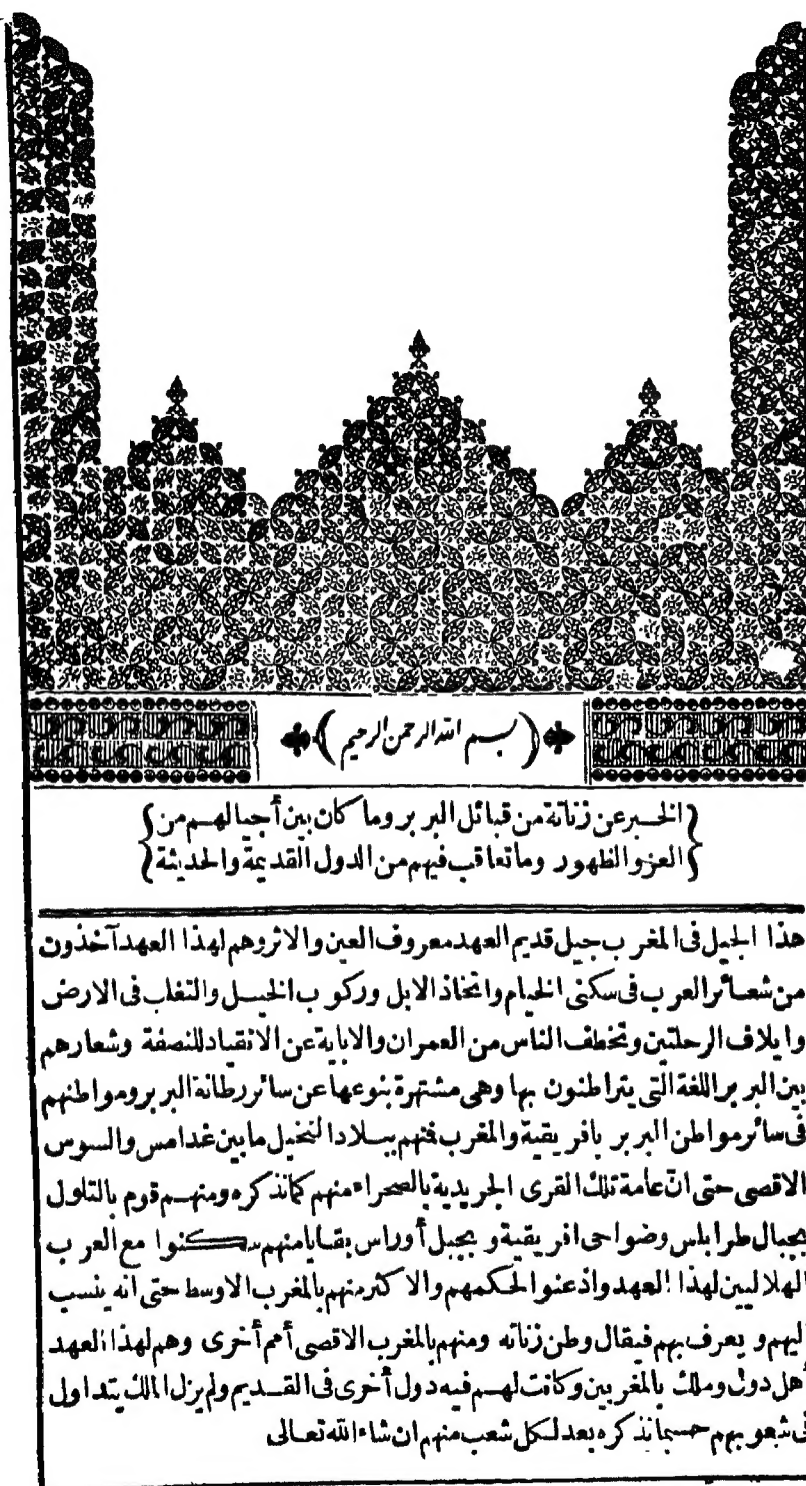 بسم الله الرحمن الرحيم
الخبر عن زناتة من قبائل البربر وما كان بين أجيالهم من
العز والظهور وما تعاقب فيهم من الدول القديمة والحديثة
هذا الجيل فى المغرب جيل قديم العهد معروف العين والاثر وهم لهذا العهد آخذون
من شعائر العرب فى سكنى الخيام واتخاذ الابل وركوب الخيل والتغلب فى الارض
وايلاف الرحلتين وتخطف الناس من العمران والاباية عن الانقياد للنصفة وشعارهم
بين البربر اللغة التى يتراطنون بها وهى مشتهرة بنوعها عن سائر رطانة البربر ومواطنهم
فى سائر مواطن البربر بافريقية والمغرب فمنهم ببلاد النخيل ما بين غدامس والسوس
الاقصى حتى انّ عامة تلك القرى الجريدية بالصحراء منهم كما نذكره ومنهم قوم بالتلول
بجبال طرابلس وضواحى افريقية وبجبل أوراس بقايا منهم سكنوا مع العرب
الهلاليين لهذا العهد واذعنوا لحكمهم والاكثر منهم بالمغرب الاوسط حتى انه ينسب
اليهم ويعرف بهم فيقال وطن زناته ومنهم بالمغرب الاقصى أمم أخرى وهم لهذا العهد
أهل دول وملك بالمغربين وكانت لهم فيه دول أخرى فى القديم ولم يزل الملك يتداول
فى شعوبهم حسبما نذكره بعد لكل شعب منهم ان شاء الله تعالى